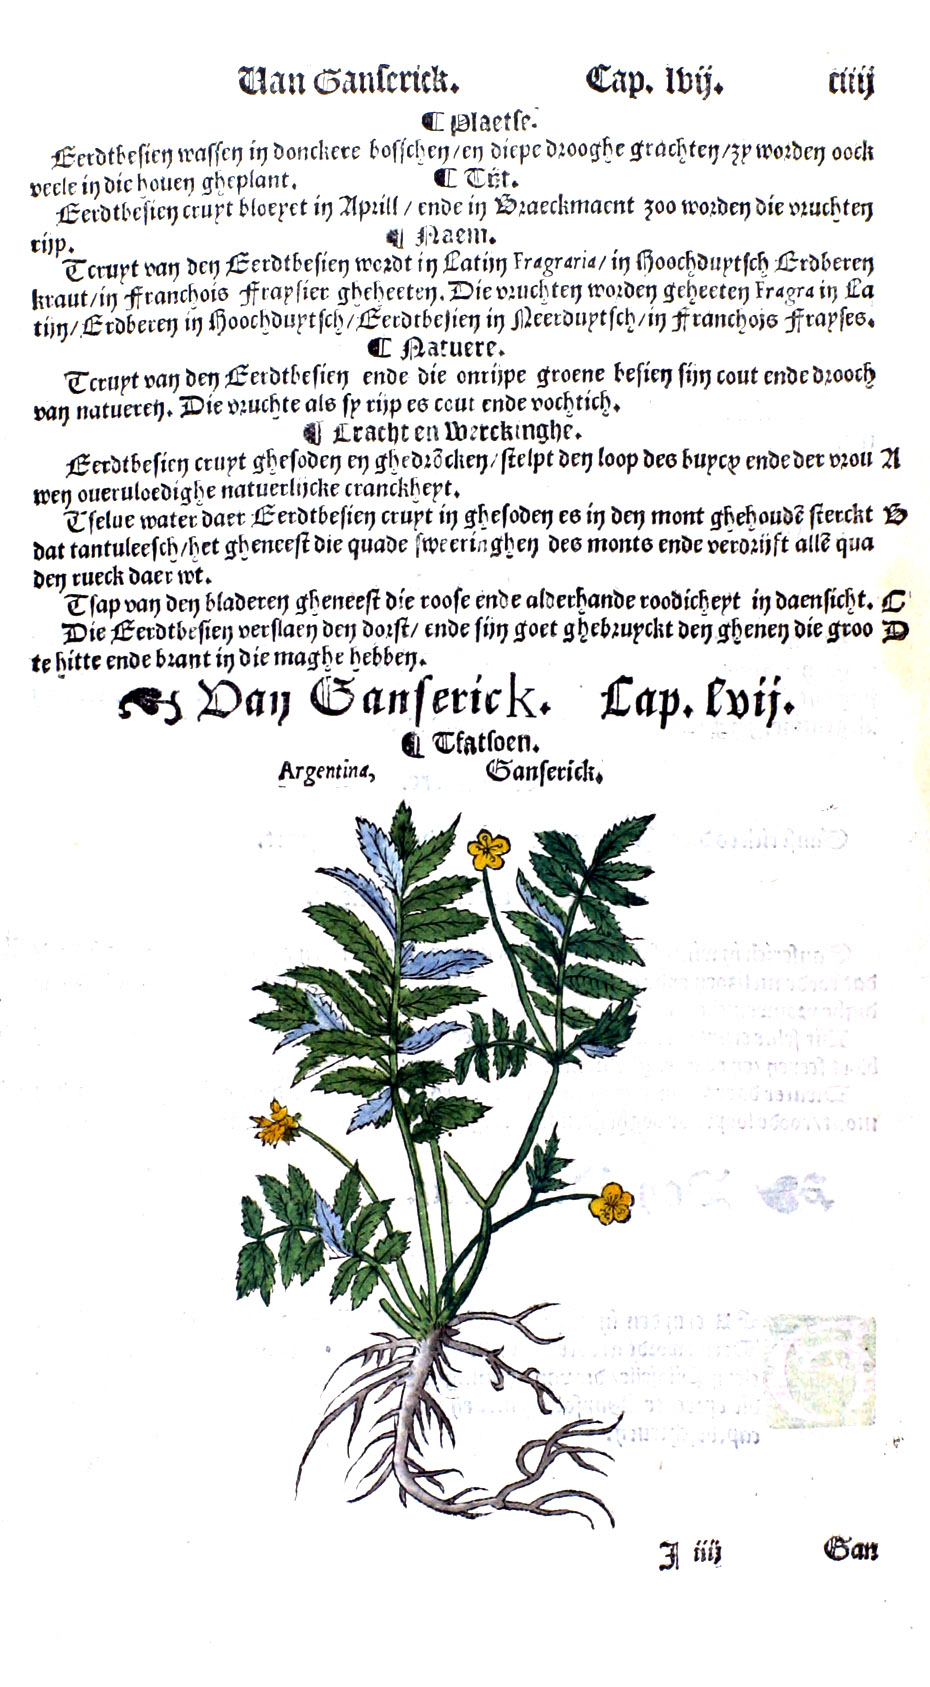 Van Ganserick. Cap. lvij. ciiij
¶ Plaetse.
Eerdtbesien wassen in donckere bosschen/en diepe drooghe grachten/zy worden oock
veele in die houen gheplant. ¶ Tijt.
Eerdtbesien cruyt bloeyet in Aprill / ende in Braeckmaent zoo worden die vruchten
rijp. ¶ Naem.
Tcruyt van den Eerdtbesien wordt in Latijn Fragraria/ in Hoochduytsch Erdberen
kraut/in Franchois Fraysier gheheeten. Die vruchten worden geheeten Fragra in La
tijn/Erdberen in Hoochduytsch/Eerdtbesien in Neerduytsch/in Franchois Frayses.
¶ Natuere.
Tcruyt van den Eerdtbesien ende die onrijpe groene besien sijn cout ende drooch
van natueren. Die vruchte als sy rijp es cout ende vochtich.
¶ Cracht en Werckinghe.
Eerdtbesien cruyt ghesoden en ghedrõcken/stelpt den loop des buycx ende der vrou A
wen oueruloedighe natuerlijcke cranckheyt.
Tselue water daer Eerdtbesien cruyt in ghesoden es in den mont ghehoudẽ sterckt B
dat tantuleesch/het gheneest die quade sweeringhen des monts ende verdrijft allẽ qua
den rueck daer wt.
Tsap van den bladeren gheneest die roose ende alderhande roodicheyt in daensicht. C
Die Eerdtbesien verslaen den dorst/ ende sijn goet ghebruyckt den ghenen die groo D
te hitte ende brant in die maghe hebben.
Van Ganserick. Cap. lvij.
¶ Tfatsoen.
Argentina, Ganserick.
J iiij Gan